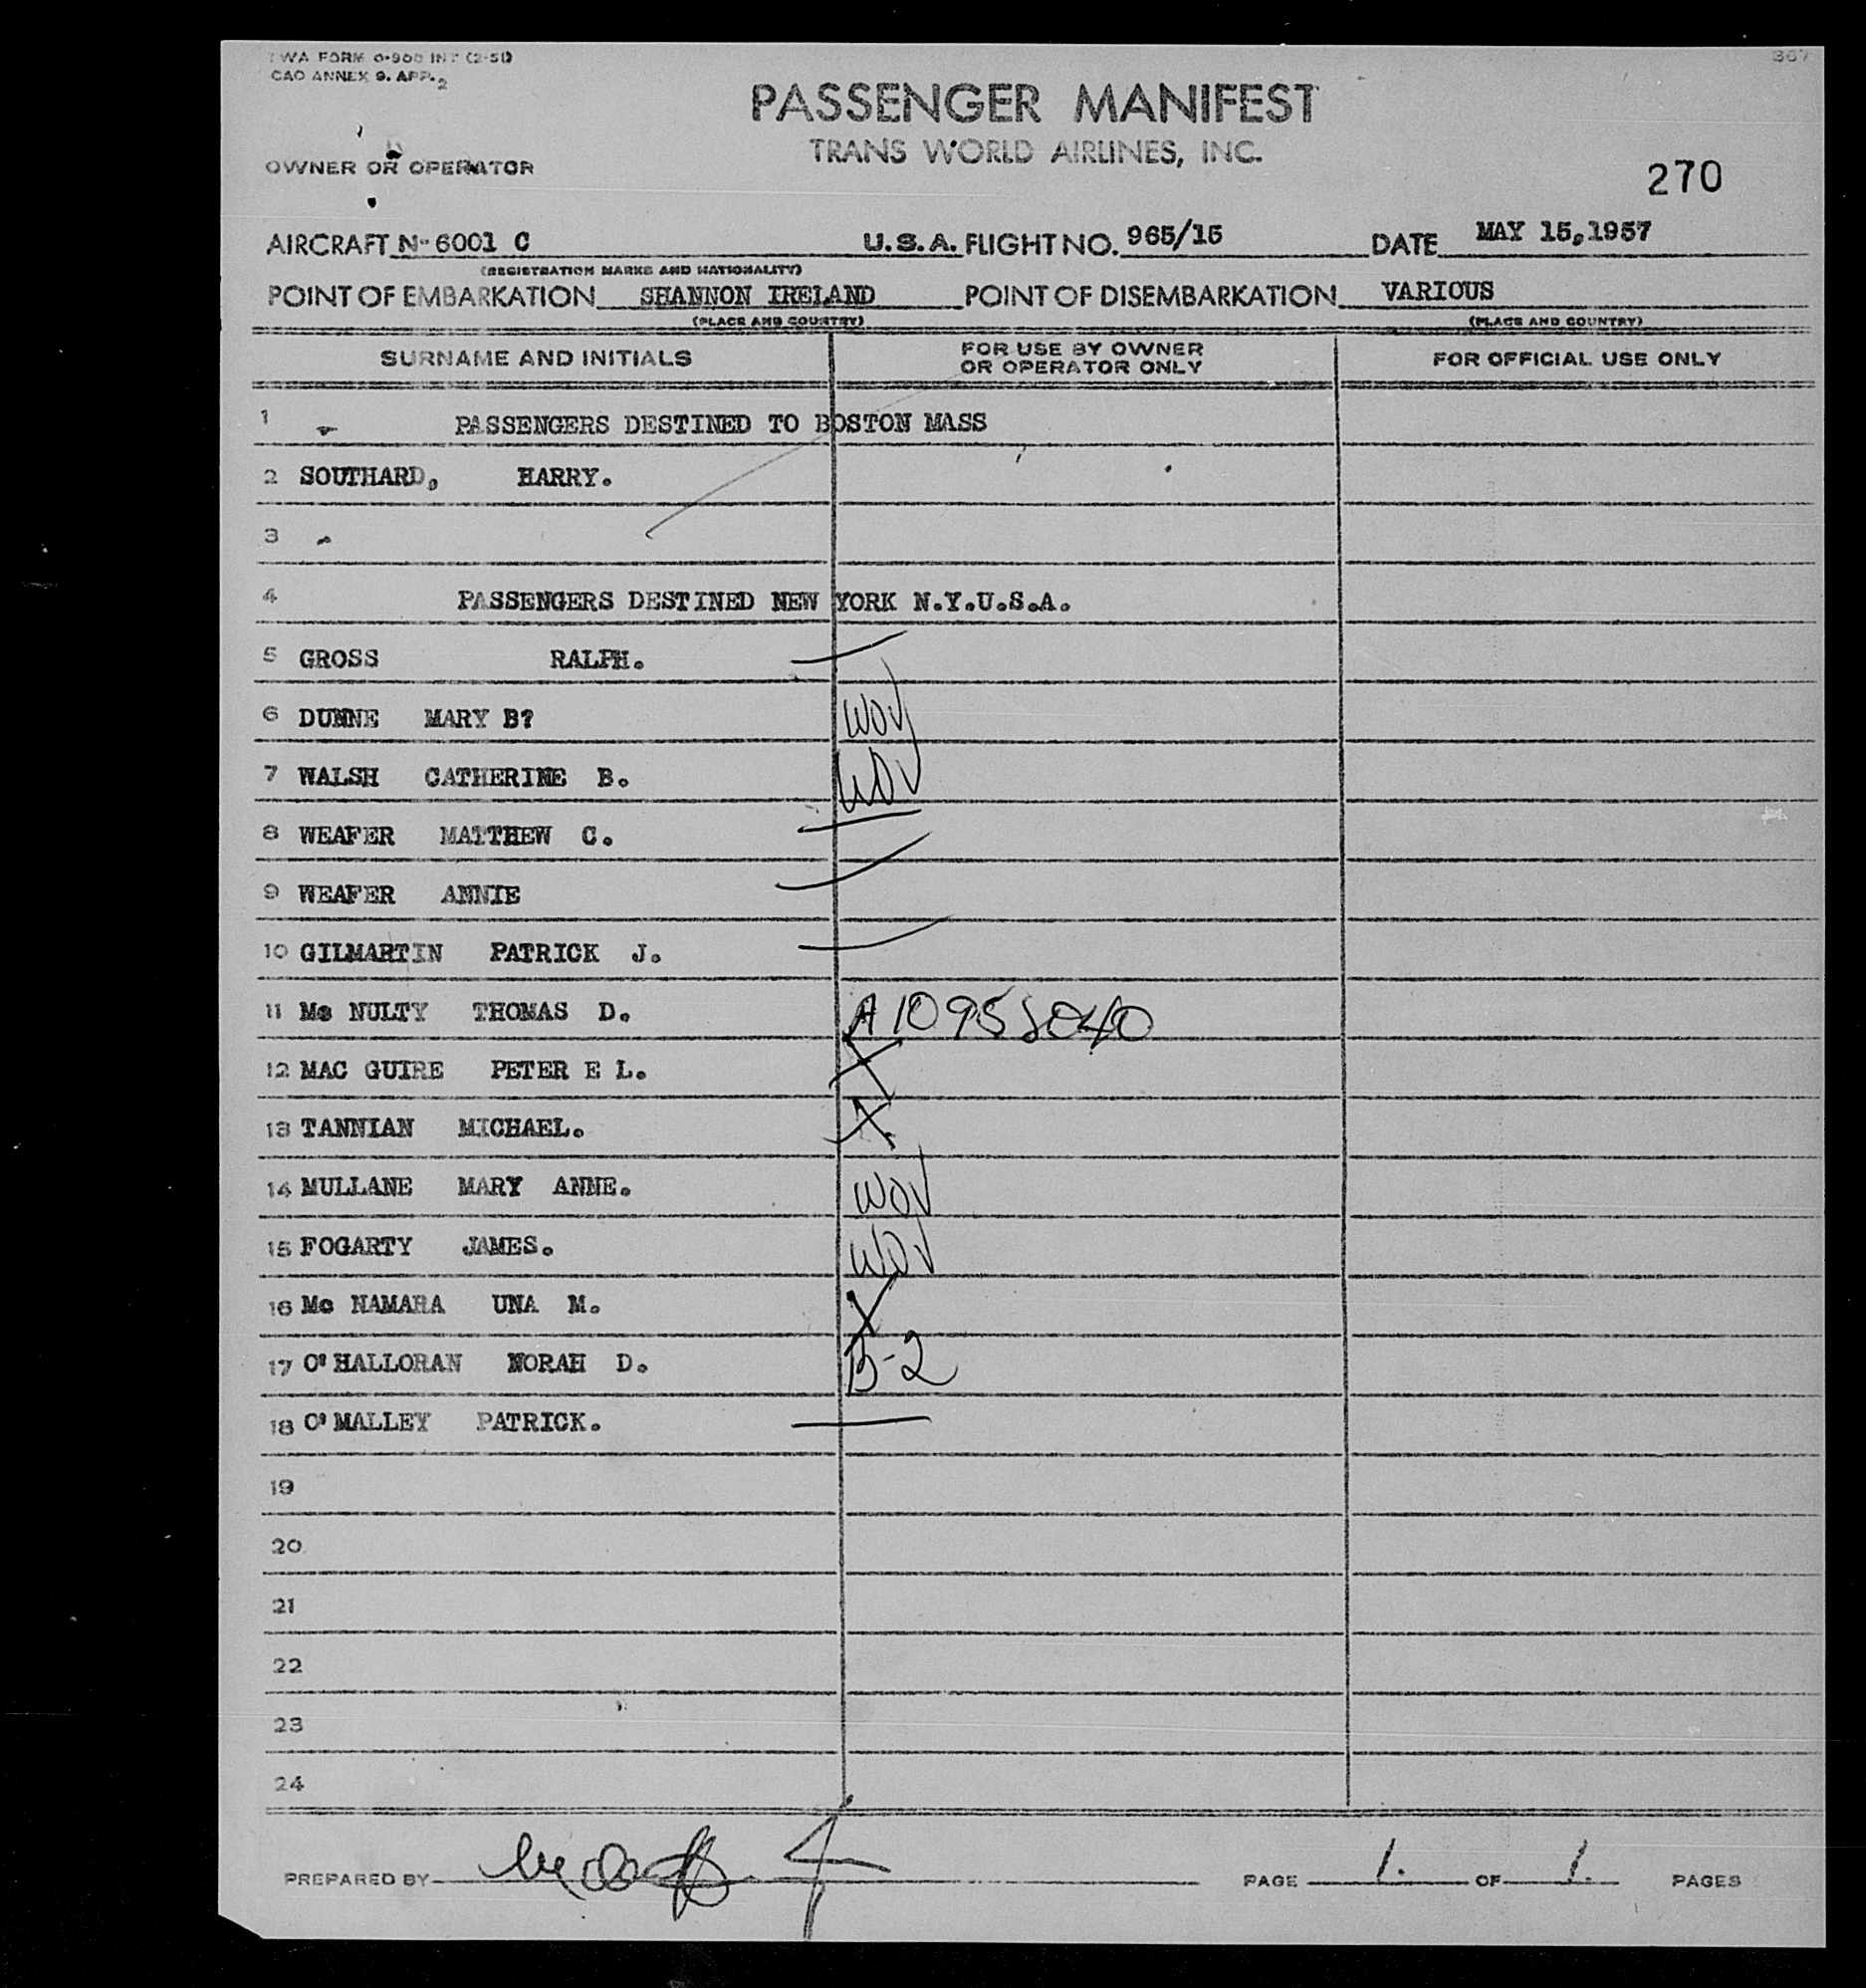 TWA FORM 0-900 INT (2-51)
CAO ANNEX 9. APP. 2
367
PASSENGER MANIFEST
TRANS WORLD AIRLINES, INC.
OWNER OR OPERATOR
270
AIRCRAFT N-6001 C U.S.A. FLIGHT NO. 965/15 DATE MAY 15,1957
(REGISTRATION MARKS AND NATIONALITY)
POINT OF EMBARKATION SHANNON IRELAND POINT OF DISEMBARKATION VARIOUS
(PLACE AND COUNTRY) (PLACE AND COUNTRY)
SURNAME AND INITIALS FOR USE BY OWNER OR OPERATOR ONLY FOR OFFICIAL USE ONLY
1 PASSENGERS DESTINED TO BOSTON MASS
2 SOUTHARD, HARRY.
3
4 PASSENGERS DESTINED NEW YORK N.Y.U.S.A.
5 GROSS RALPH.
6 DUNNE MARY B? WOV
7 WALSH CATHERINE B. WOV
8 WEAFER MATTHEW C.
9 WEAFER ANNIE
10 GILMARTIN PATRICK J.
11 Mc NULTY THOMAS D. A10955040
12 MAC GUIRE PETER E L. X
13 TANNIAN MICHAEL. X
14 MULLANE MARY ANNE. WOV
15 FOGARTY JAMES. WOV
16 Mc NAMARA UNA M. X
17 O'HALLORAN NORAH D. B-2
18 O'MALLEY PATRICK.
19
20
21
22
23
24
PREPARED BY PAGE 1. OF 1. PAGES